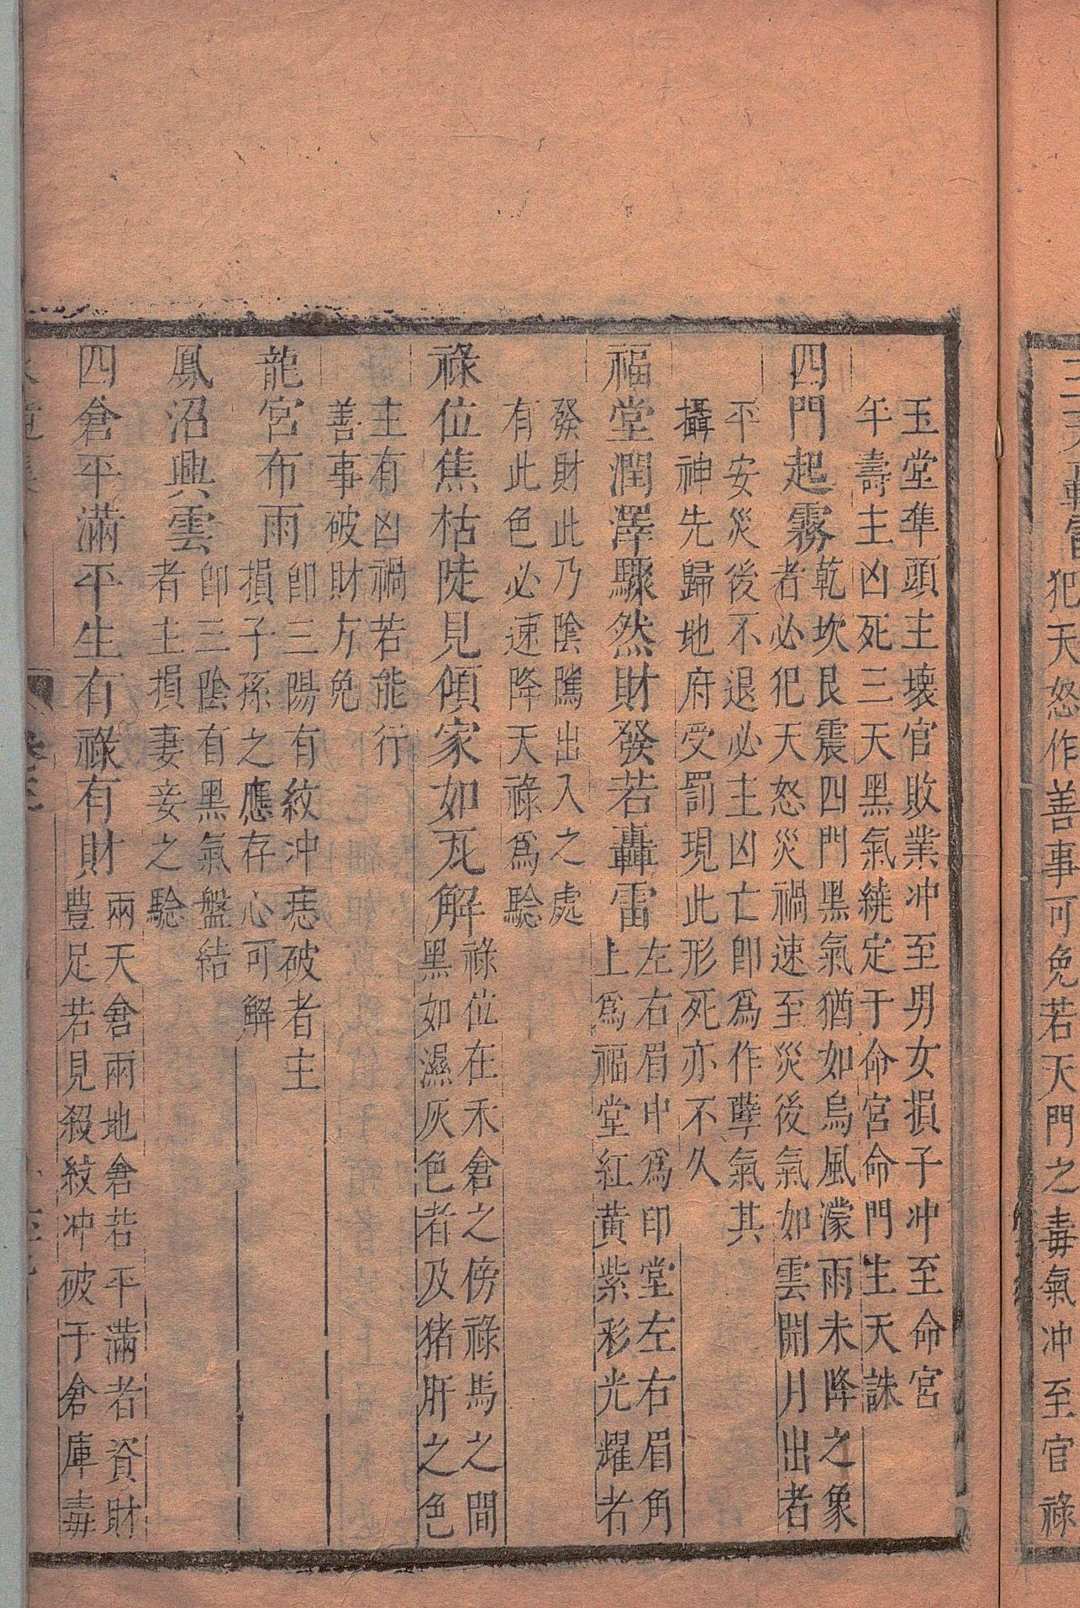 犯天怒作善事可免若天門之毒氣冲至官祿
玉堂準頭主壞官敗業冲至男女損子冲至命宮
年壽主凶死三天黑氣繞定于命宮命門生天誅
四門起霧
乾坎艮震四門黑氣猶如烏風濛雨未降之象
者必犯天怒災禍速至災後氣如雲開月出者
平安災後不退必主凶亡卽爲作孽氣其
攝神先歸地府受罰現此形死亦不久
福堂潤澤驟然財發若轟雷
左右眉中爲印堂左右眉角
上爲福堂紅黃紫彩光耀者
發財此乃陰隲出入之處
有此色必速降天祿爲驗
祿位焦枯陡見傾家如瓦解
祿位在禾倉之傍祿馬之間
黑如濕灰色者及猪肝之色
主有凶禍若能行
善事破財方免
龍宮布雨
卽三陽有紋冲痣破者主
損子孫之應存心可解
鳳沼興雲
卽三陰有黑氣盤結
者主損妻妾之驗
四倉平滿平生有祿有財
兩天倉兩地倉若平滿者資財
豐足若見殺紋冲破于倉庫毒